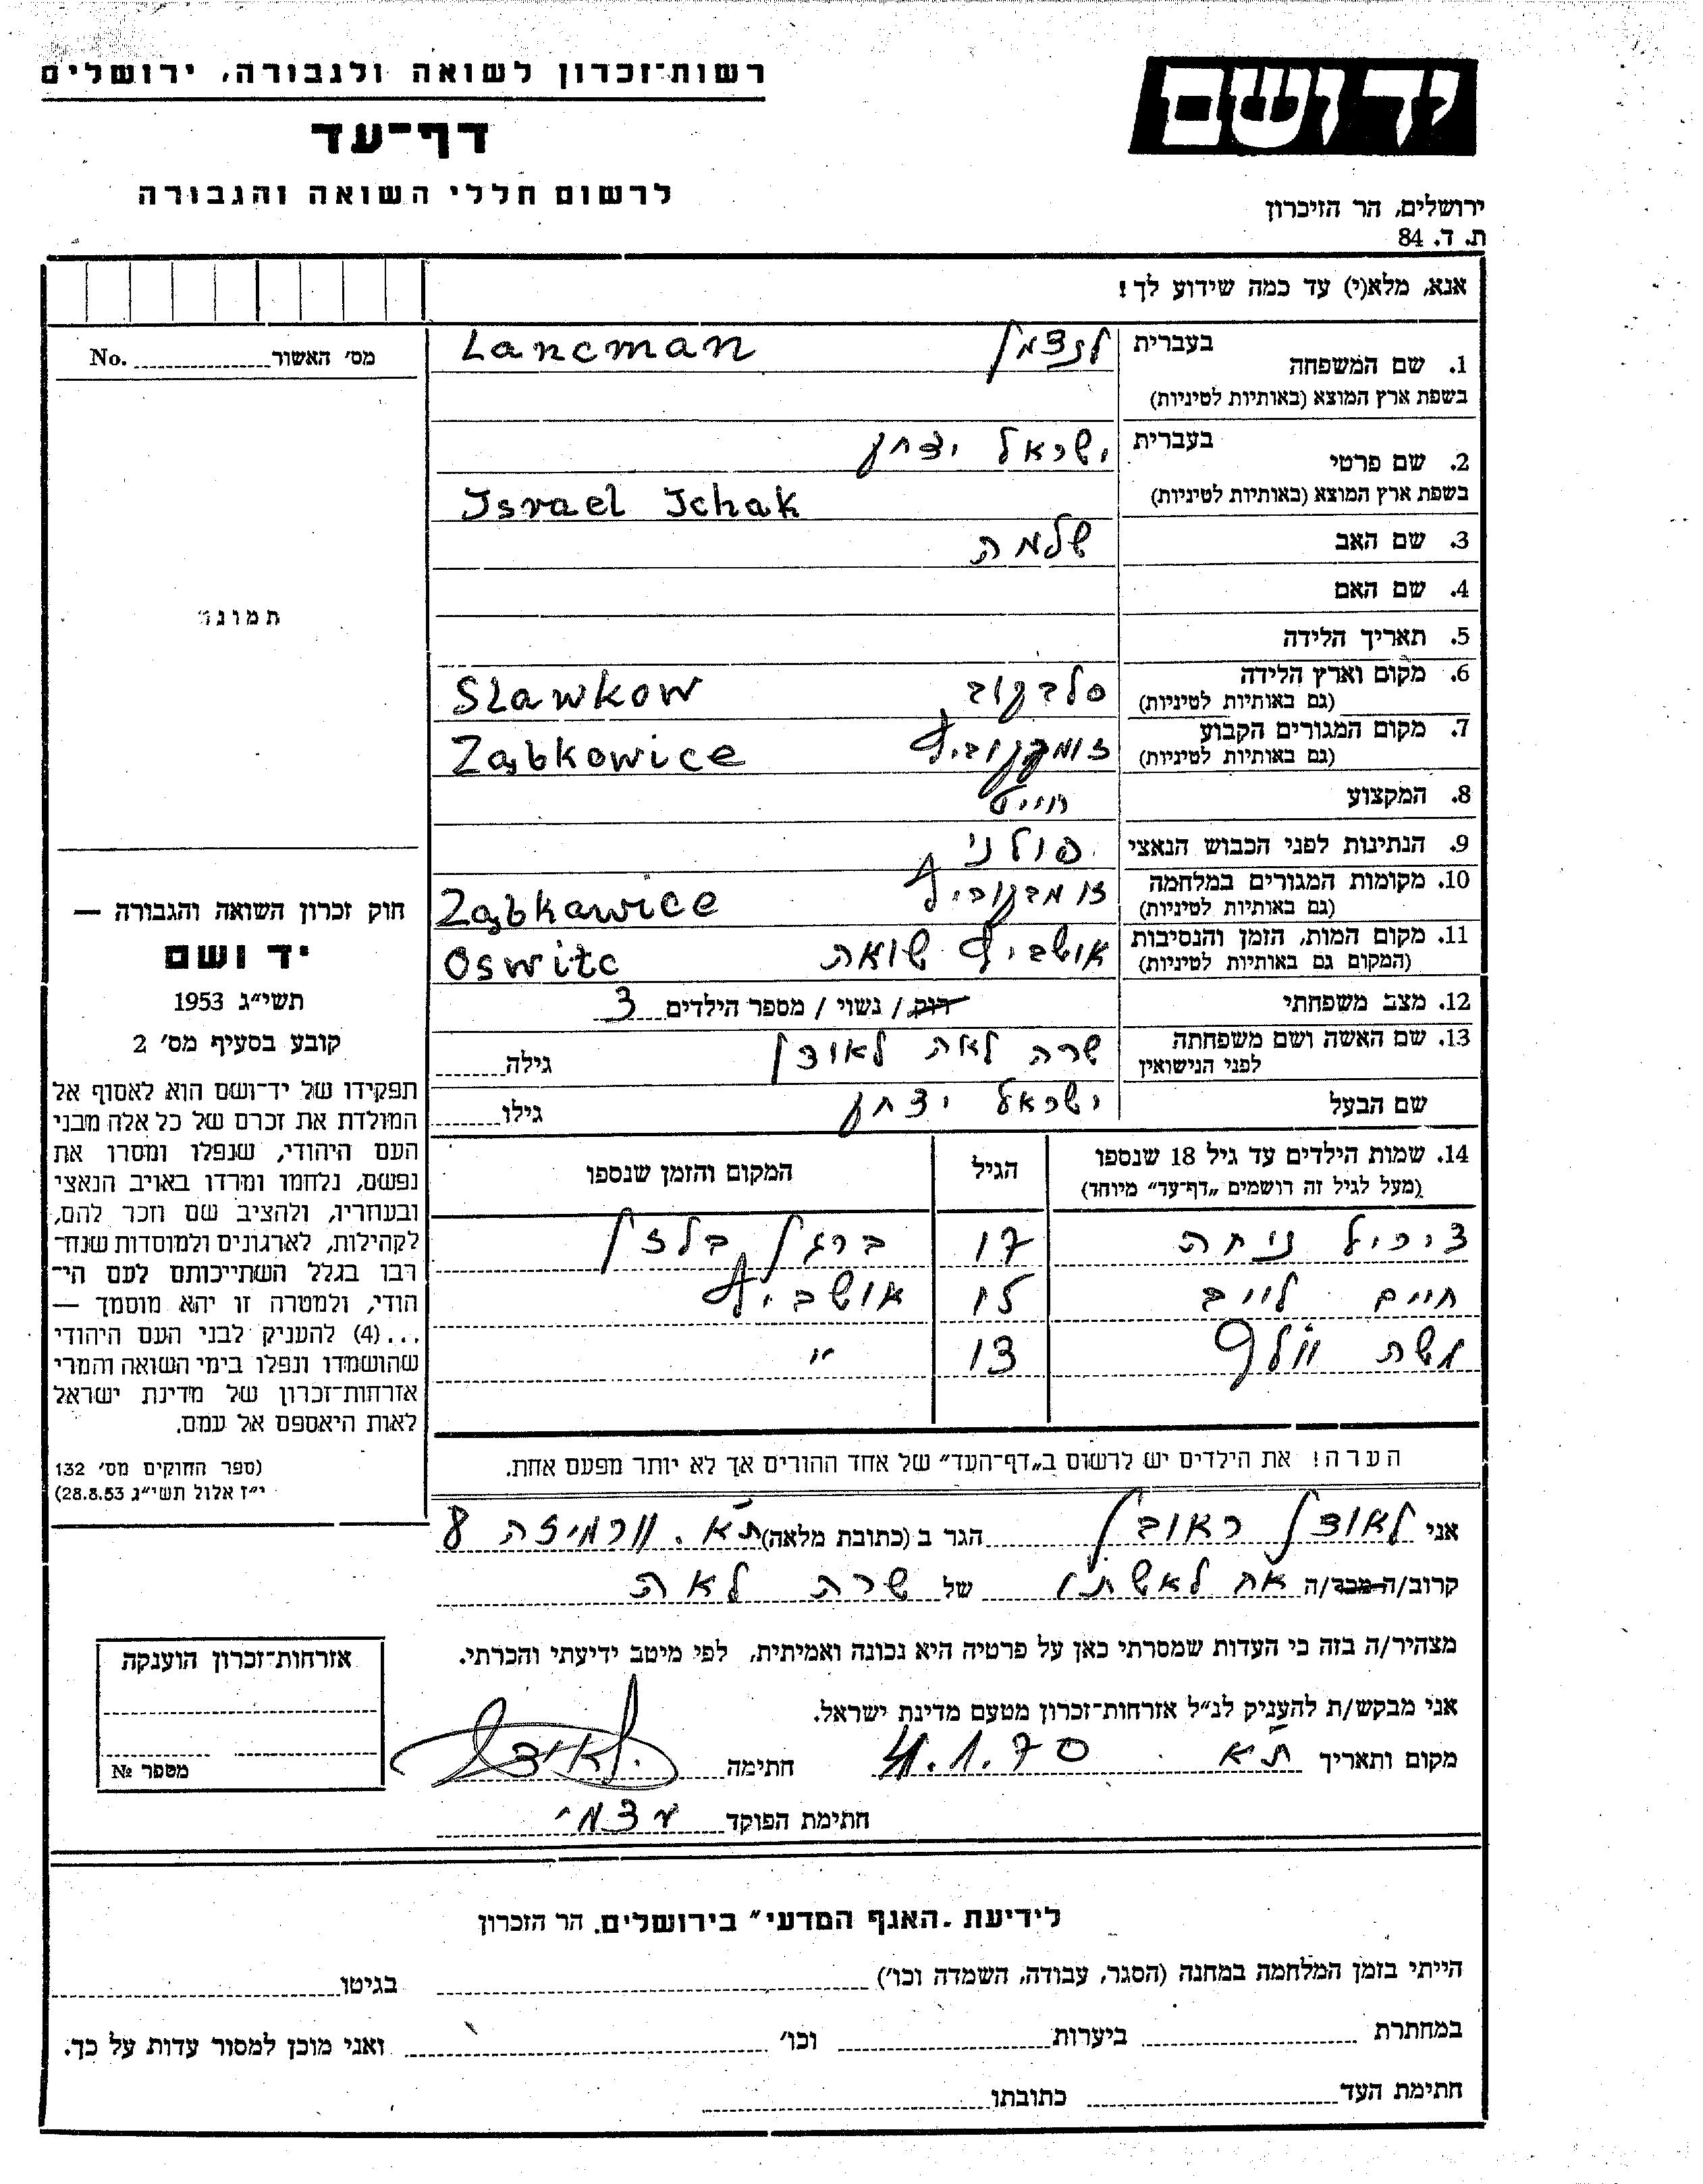 רשות־זכרון לשואה ולגבורה, ירושלים
דף־עד
לרשום חללי השואה והגבורה
יד ושם
ירושלים, הר הזיכרון
ת. ד. 84
אנא, מלא(י) עד כמה שידוע לך!
1. שם המשפחה בעברית לנצמן Lancman
בשפת ארץ המוצא (באותיות לטיניות)
2. שם פרטי בעברית ישראל יצחק
בשפת ארץ המוצא (באותיות לטיניות) Israel Ichak
3. שם האב שלמה
4. שם האם
5. תאריך הלידה
6. מקום וארץ הלידה סלבקוב Sławkow
(גם באותיות לטיניות)
7. מקום המגורים הקבוע Ząbkowice
(גם באותיות לטיניות)
8. המקצוע חייט
9. הנתינות לפני הכבוש הנאצי פולני
10. מקומות המגורים במלחמה זומבקוביץ Ząbkawice
(גם באותיות לטיניות)
11. מקום המות, הזמן והנסיבות אושביץ שואה Oswitc
(המקום גם באותיות לטיניות)
12. מצב משפחתי רווק / נשוי / מספר הילדים 3
13. שם האשה ושם משפחתה שרה לאה לאוצן גילה
לפני הנישואין
שם הבעל ישראל יצחק גילו
14. שמות הילדים עד גיל 18 שנספו הגיל המקום והזמן שנספו
(מעל לגיל זה רושמים „דף־עד” מיוחד)
נוחה 17 ברגן בלזן
חיים לייב 15 אושביץ
משה וולף 13 "
הערה! את הילדים יש לרשום ב„דף־העד” של אחד ההורים אך לא יותר מפעם אחת.
אני לאוצן ראובן הגר ב (כתובת מלאה) ת"א. וורמיזה 8
קרוב/ה מכר/ה אח לאשתו של שרה לאה
מצהיר/ה בזה כי העדות שמסרתי כאן על פרטיה היא נכונה ואמיתית, לפי מיטב ידיעתי והכרתי.
אני מבקש/ת להעניק לנ״ל אזרחות־זכרון מטעם מדינת ישראל.
מקום ותאריך ת"א 4.1.70 חתימה לאוצן
חתימת הפוקד עצמי
מס׳ האשור No.
תמונה
חוק זכרון השואה והגבורה —
יד ושם
תשי״ג 1953
קובע בסעיף מס׳ 2
תפקידו של יד־ושם הוא לאסוף אל
המולדת את זכרם של כל אלה מבני
העם היהודי, שנפלו ומסרו את
נפשם, נלחמו ומרדו באויב הנאצי
ובעוזריו, ולהציב שם וזכר להם,
לקהילות, לארגונים ולמוסדות שנח־
רבו בגלל השתייכותם לעם הי־
הודי, ולמטרה זו יהא מוסמך —
...(4) להעניק לבני העם היהודי
שהושמדו ונפלו בימי השואה והמרי
אזרחות־זכרון של מדינת ישראל
לאות היאספם אל עמם.
(ספר החוקים מס׳ 132
י״ז אלול תשי״ג 28.8.53)
אזרחות־זכרון הוענקה
מספר №
לידיעת „האגף המדעי” בירושלים. הר הזכרון
הייתי בזמן המלחמה במחנה (הסגר, עבודה, השמדה וכו׳) בגיטו
במחתרת ביערות וכו׳ ואני מוכן למסור עדות על כך.
חתימת העד כתובתו